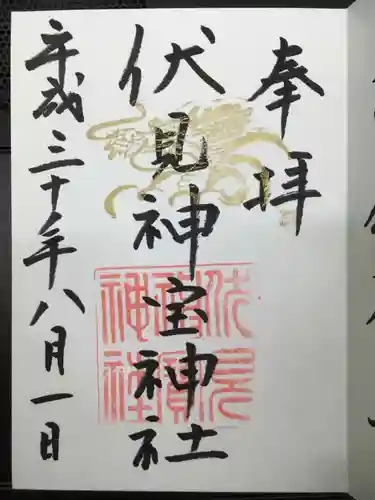 奉拝
伏見神宝神社
平成三十年八月一日
伏見
神寳
神社